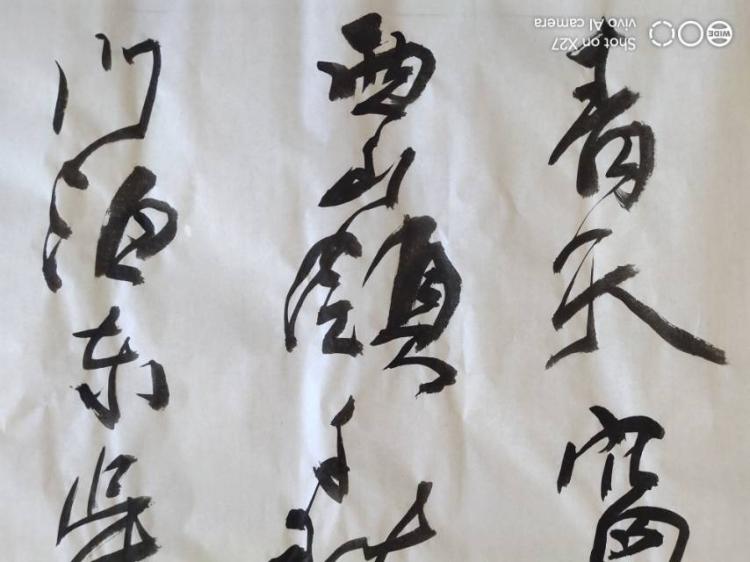 青天窗
西嶺千秋
门泊东吴
WIDE
Shot on X27
vivo AI camera